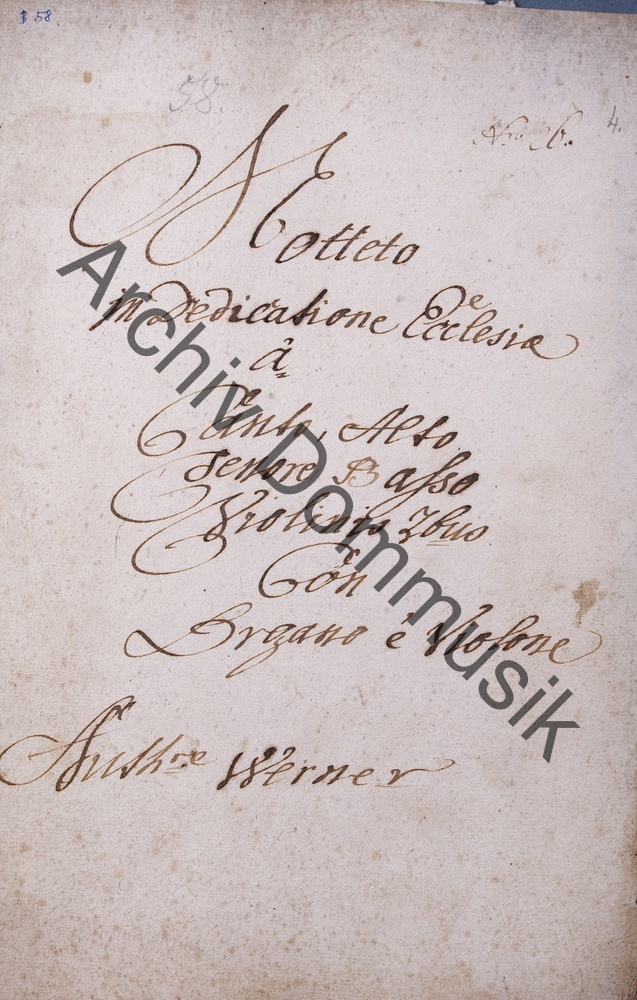 58
58.
4.
Nro 26.
Motteto
in Dedicatione Ecclesiæ
â
Canto, Alto
Tenore Basso
Violinis 2bus
Con
Organo è Violone
Authre Werner
Archiv Dommusik